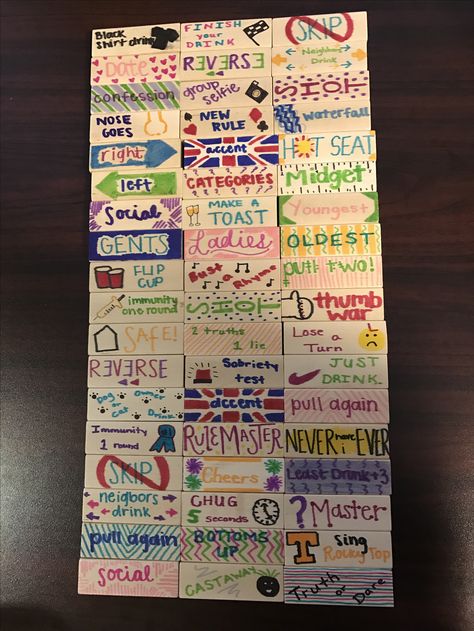 Black shirt drink
FINISH your DRINK
SKIP
Date
REVERSE
Neighbors Drink
confession
group selfie
SHOT
NOSE GOES
NEW RULE
waterfall
right
accent
HOT SEAT
left
CATEGORIES
Midget
Social
MAKE A TOAST
Youngest
GENTS
Ladies
OLDEST
FLIP CUP
Bust a Rhyme
pull TWO!
immunity one round
SHOT
thumb war
SAFE!
2 truths 1 lie
Lose a Turn
REVERSE
Sobriety test
JUST DRINK.
Dog or Cat Owner Drink
accent
pull again
Immunity 1 round
RULEMASTER
NEVER have i EVER
SKIP
Cheers
Least Drunk +3
neigbors drink
CHUG 5 seconds
? Master
pull again
BOTTOMS UP
T Sing Rocky Top
social
CASTAWAY
Truth or Dare